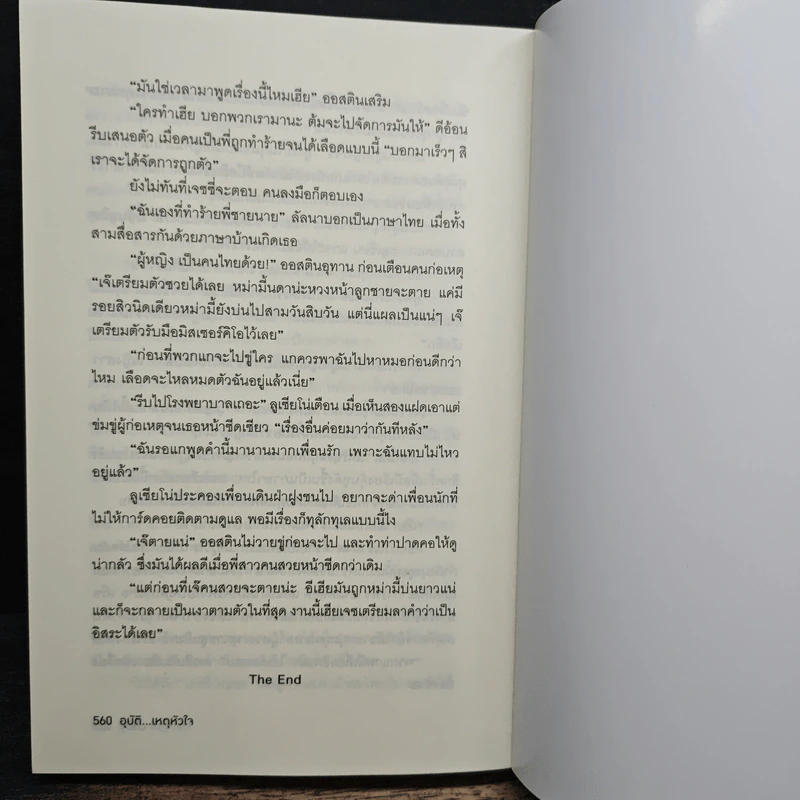 “มันใช่เวลามาพูดเรื่องนี้ไหมเฮีย” ออสตินเสริม
“ใครทำเฮีย บอกพวกเรามานะ ต้มจะไปจัดการมันให้” ดีอ้อน
รีบเสนอตัว เมื่อคนเป็นพี่ถูกทำร้ายจนได้เลือดแบบนี้ “บอกมาเร็วๆ สิ
เราจะได้จัดการถูกตัว”
ยังไม่ทันที่เจซซี่จะตอบ คนลงมือก็ตอบเอง
“ฉันเองที่ทำร้ายพี่ชายนาย” ลัลนาบอกเป็นภาษาไทย เมื่อทั้ง
สามสื่อสารกันด้วยภาษาบ้านเกิดเธอ
“ผู้หญิง เป็นคนไทยด้วย!” ออสตินอุทาน ก่อนเตือนคนก่อเหตุ
“เจ๊เตรียมตัวซวยได้เลย หม่ามี้นดาน่ะหวงหน้าลูกชายจะตาย แค่มี
รอยสิวนิดเดียวหม่ามี้ยังบ่นไปสามวันสิบวัน แต่นี่แผลเป็นแน่ๆ เจ๊
เตรียมตัวรับมือมิสเซอร์คิโอไว้เลย”
“ก่อนที่พวกแกจะไปขู่ใคร แกควรพาฉันไปหาหมอก่อนดีกว่า
ไหม เลือดจะไหลหมดตัวฉันอยู่แล้วเนี่ย”
“รีบไปโรงพยาบาลเถอะ” ลูเซียโน่เตือน เมื่อเห็นสองแฝดเอาแต่
ข่มขู่ผู้ก่อเหตุจนเธอหน้าซีดเซียว “เรื่องอื่นค่อยมาว่ากันทีหลัง”
“ฉันรอแกพูดคำนี้มานานมากเพื่อนรัก เพราะฉันแทบไม่ไหว
อยู่แล้ว”
ลูเซียโน่ประคองเพื่อนเดินฝ่าฝูงชนไป อยากจะด่าเพื่อนนักที่
ไม่ให้การ์ดคอยติดตามดูแล พอมีเรื่องก็ทุลักทุเลแบบนี้ไง
“เจ๊ตายแน่” ออสตินไม่วายขู่ก่อนจะไป และทำท่าปาดคอให้ดู
น่ากลัว ซึ่งมันได้ผลดีเมื่อพี่สาวคนสวยหน้าซีดกว่าเดิม
“แต่ก่อนที่เจ๊คนสวยจะตายน่ะ อีเฮียมันถูกหม่ามี้บ่นยาวแน่
และก็จะกลายเป็นเงาตามตัวในที่สุด งานนี้เฮียเจซเตรียมลาคำว่าเป็น
อิสระได้เลย”
The End
560 อุบัติ...เหตุหัวใจ